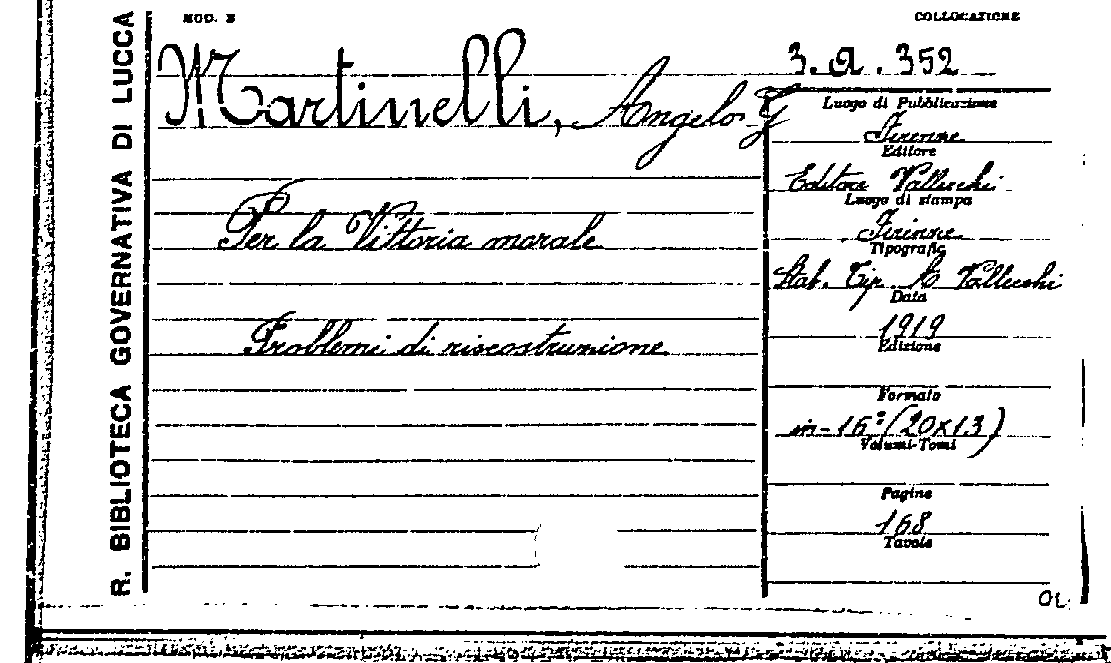 R. BIBLIOTECA GOVERNATIVA DI LUCCA
MOD. B
COLLOCAZIONE
3. A. 352
Martinelli, Angelo J
Per la Vittoria morale
Problemi di riscostrunione
Luogo di Pubblicazione
Firenne
Editore
Editore Vallecchi
Luogo di stampa
Firenne
Tipografia
Stab. Tip. A Vallecchi
Data
1919
Edizione
Formato
in-16° (20x13)
Volumi-Tomi
Pagine
168
Tavole